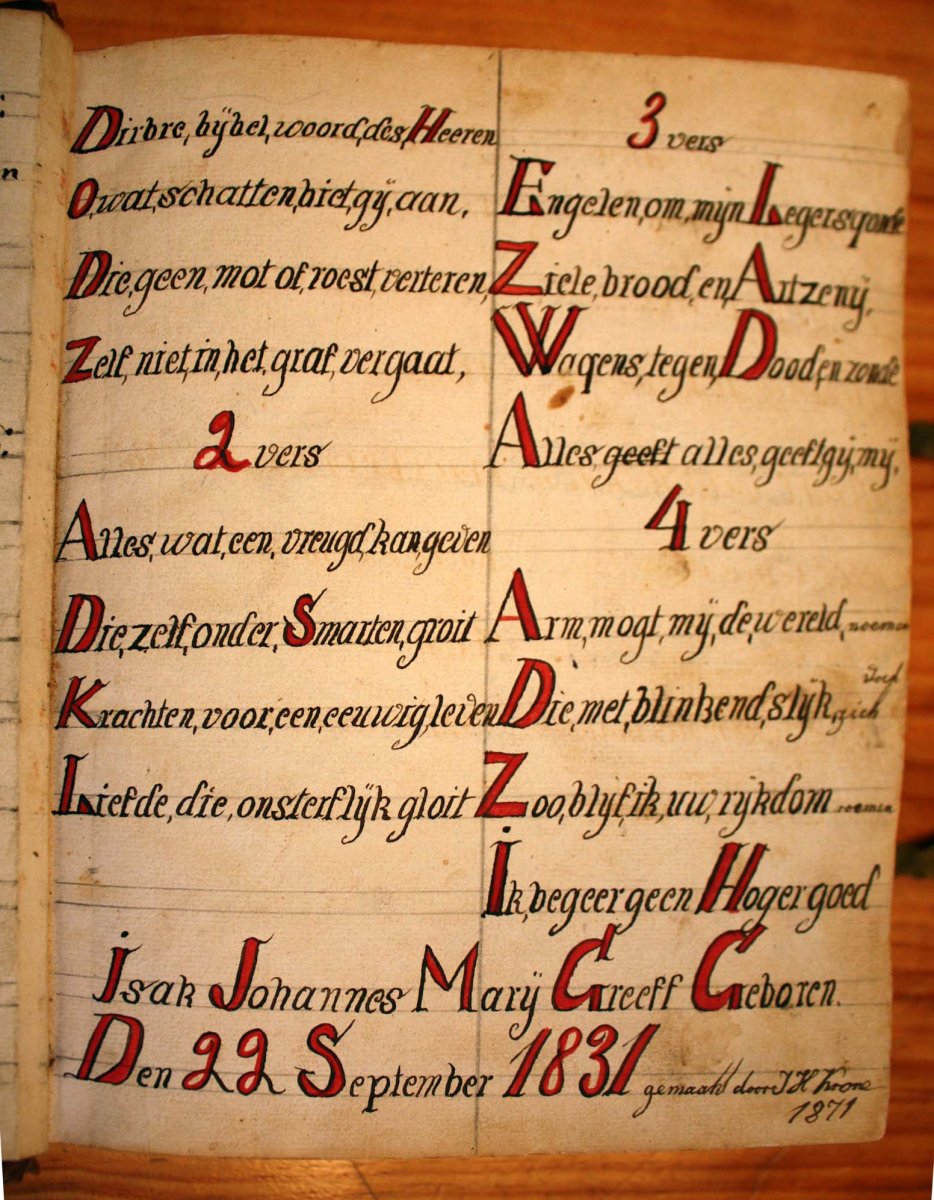 Dirbre, bijbel, woord, des, Heeren
O, wat, schatten, biet, gij, aan,
Die, geen, mot of, roest, verteren,
Zelf, niet, in, het, graf, vergaat,
2 vers
Alles, wat, een, vreugd, kan, geven
Die, zelf, onder, Smarten, groit
Krachten, voor, een, eeuwig, leven
Liefde, die, onsterflijk gloit
3 vers
Engelen, om, mijn Legersponde
Ziele, brood, en, Artzenij,
Wapens, tegen, Dood, en zonde
Alles geeft alles, geeft gij, mij,
4 vers
Arm, mogt, mij, de, wereld, noemen
Die, met, blinkend, slijk, zich
Zoo, blijf, ik, uw, rijkdom roemen
Ik, begeer geen Hoger goed
Isak Johannes Marij Greeff Geboren.
Den 22 September 1831
gemaakt door J H Krone
1871